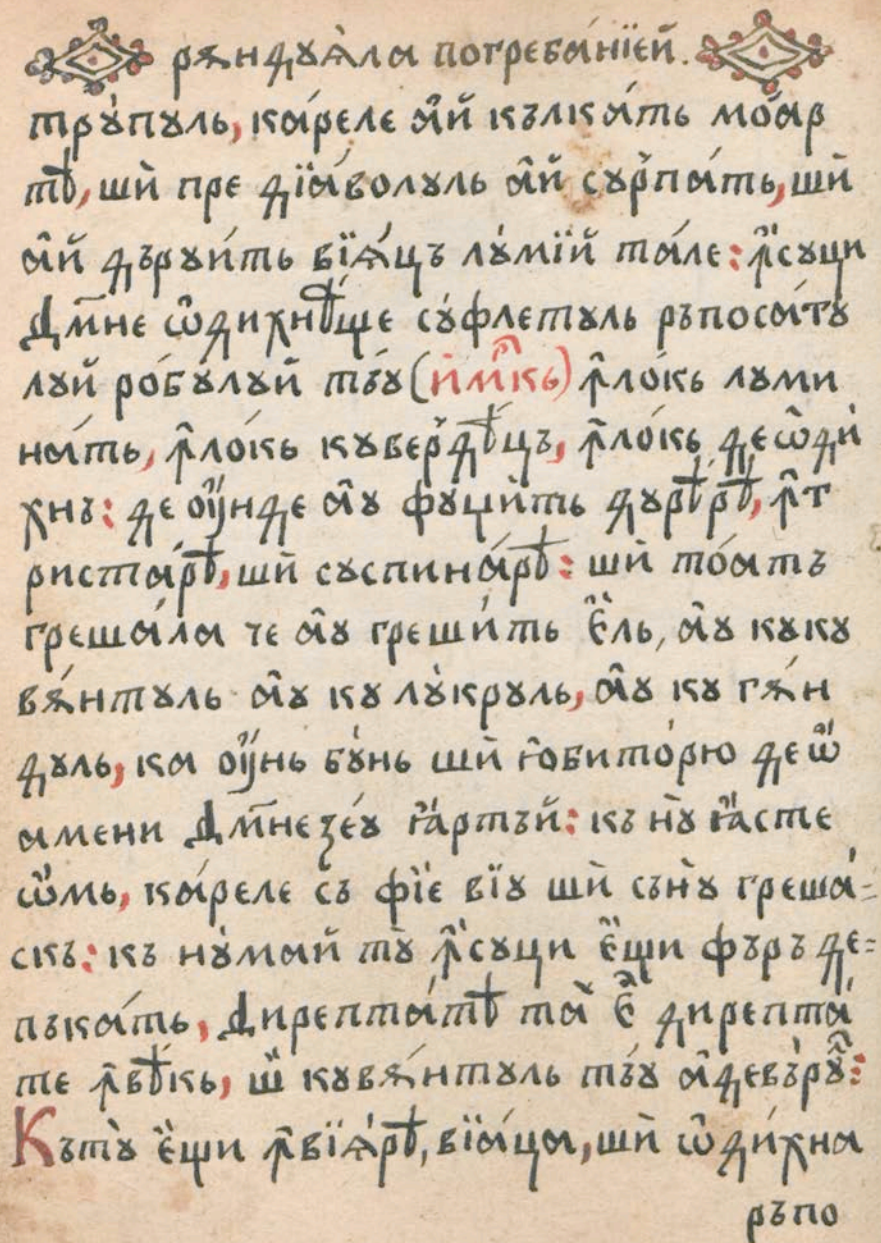 рѫндꙋѧ̀ла погребанїей.
трꙋ́пꙋль, ка́реле а҆̂й кълка́ть мо́ар
тѣ, шѝ пре дїа́волꙋль а҆̂й сꙋрпа́ть, шѝ
а҆̂й дърꙋи́ть вїѧ́цъ лꙋ́мїй та́ле: ꙟ҆̀сꙋци
Дм҃не ѡ҆дихнѣ́ще сꙋ́флетꙋль ръпоса́тꙋ
лꙋй ро́бꙋлꙋй тъ́ꙋ (и҆м҃кь) ꙟ҆ло́кь лꙋми
на́ть, ꙟ҆ло́кь кꙋвердѣ́цъ, ꙟ҆ло́кь деѡ҆ди́
хнъ: де ᲂу҆́нде а҆̂ꙋ фꙋџи́ть дꙋрѣ́рѣ, ꙟ҆т
риста́рѣ, шѝ сꙋспина́рѣ: шѝ то́атъ
греша́ла че а҆̂ꙋ греши́ть є҆́ль, а҆̂ꙋ кꙋкꙋ
вѫ́нтꙋль а҆̂ꙋ кꙋ лꙋ́крꙋль, а҆̂ꙋ кꙋ гѫ́н
дꙋль, ка ᲂу҆́нь бꙋ́нь шѝ ю҆бито́рю де ѡ҆́
амени Дм҃незе́ꙋ ꙗ҆́ртъй: къ нꙋ̀ ꙗ҆́сте
ѡ҆́мь, ка́реле съ фїе вїꙋ шѝ сънꙋ̀ греша́-
скъ: къ нꙋ́май тꙋ̀ ꙟ҆́сꙋци є҆́щи фъръ де-
пъка́ть, Дирепта́тѣ та̀ є҆̂ дирепта́
те ꙟ҆вѣ́кь, ш҆̀ кꙋвѫ́нтꙋль тъ́ꙋ а҆девъ́рꙋ:
Кътꙋ̀ є҆́щи ꙟ҆вїѧ́рѣ, вїа́ца, шѝ ѡ҆ди́хна
ръпо